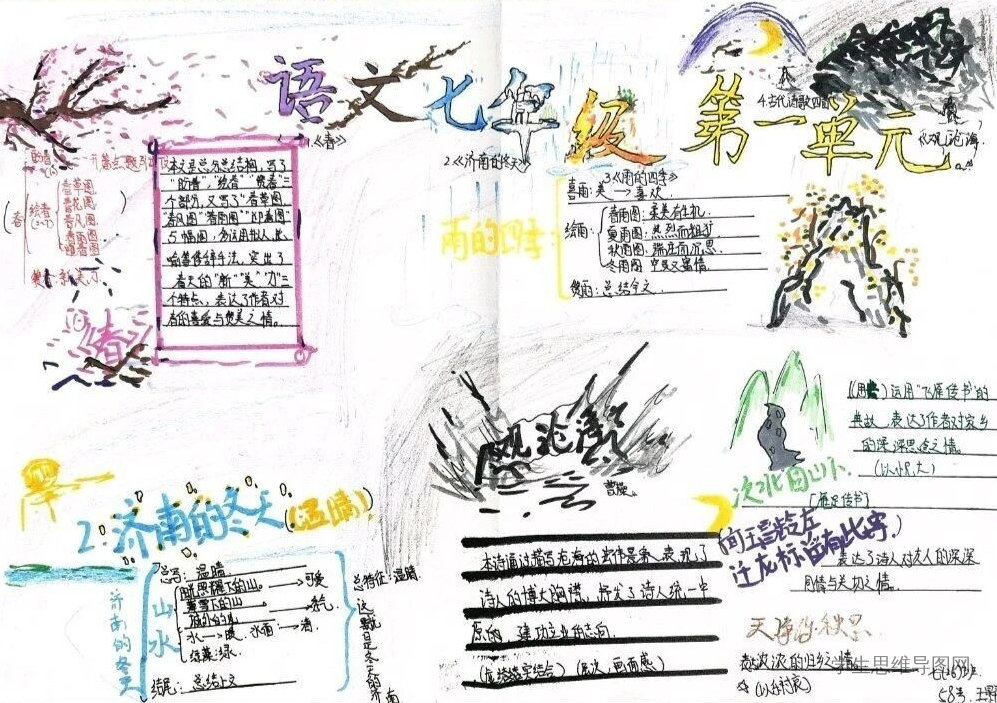 语文七年级 第一单元
1.《春》
盼春
绘春
春草图
春花图
春风图
春雨图
迎春图
赞春:新、美、力
《春》
本文是总分总结构,写了
"盼春","绘春""赞春"三
个部分,又写了"春草图"
"春风图""春雨图""迎春图"
5幅图,多运用拟人、比
喻等修辞手法,突出了
春天的"新""美""力"三
个特点,表达了作者对
春的喜爱与赞美之情。
2.《济南的冬天》
3.《雨的四季》
雨的四季
喜雨:美→喜欢
绘雨:
春雨图:柔美有生机.
夏雨图:热烈而粗犷
秋雨图:端庄而沉思.
冬雨图:
赞雨:总结全文.
4.古代诗歌四首
《观沧海》
观沧海
曹操
本诗通过描写沧海的
诗人的博大胸襟,抒发了诗人统一中
原的,建功立业的志向.
(虚实结合)
次北固山下
运用"飞雁传书"的
典故,表达了作者对家乡
的深深思念之情。
[雁足传书]
闻王昌龄左
迁龙标遥有此寄
表达了诗人对友人的深深
同情与关切之情。
天净沙·秋思
表达浓浓的归乡之情
2.济南的冬天(温晴!)
济南的冬天
总写:温晴
山
阳光朗照下的山
薄雪下的山
城外的山
可爱
秀气.
水
绿藻:绿.
结尾:总结全文
总特征:温晴.
这就是冬天的济南
学生思维导图网
58号